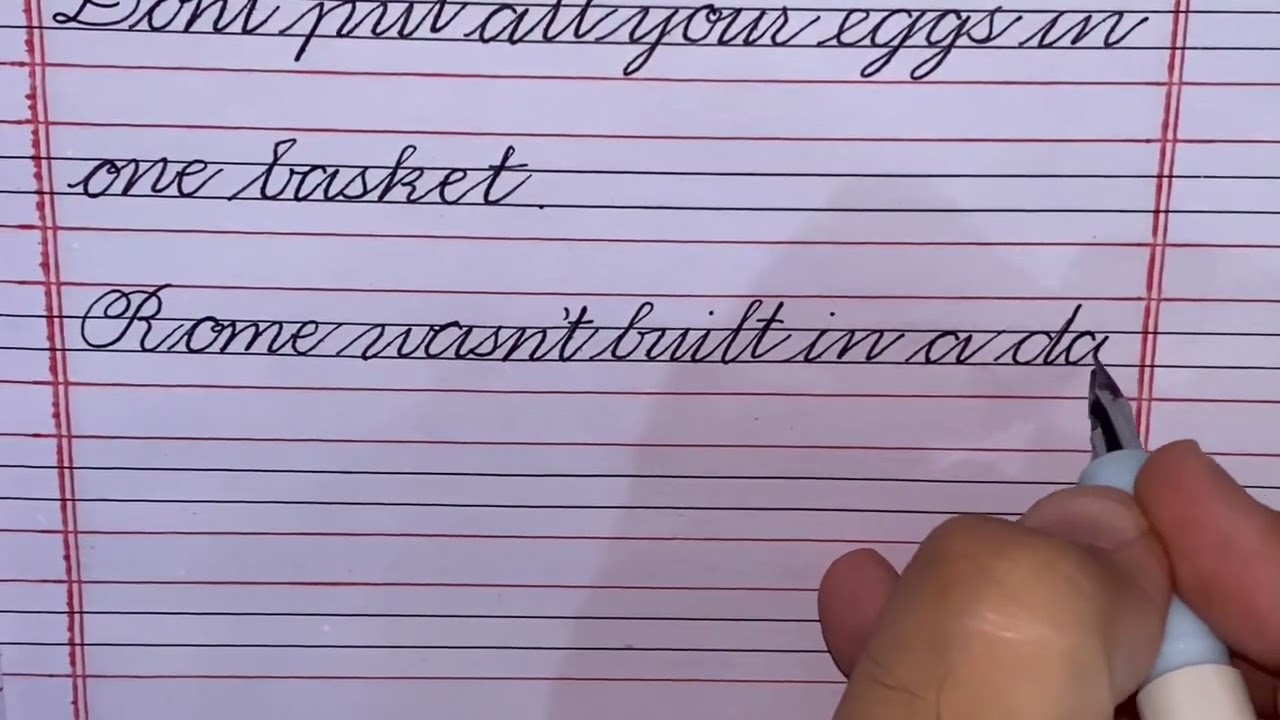 Don't put all your eggs in
one basket.
Rome wasn't built in a da